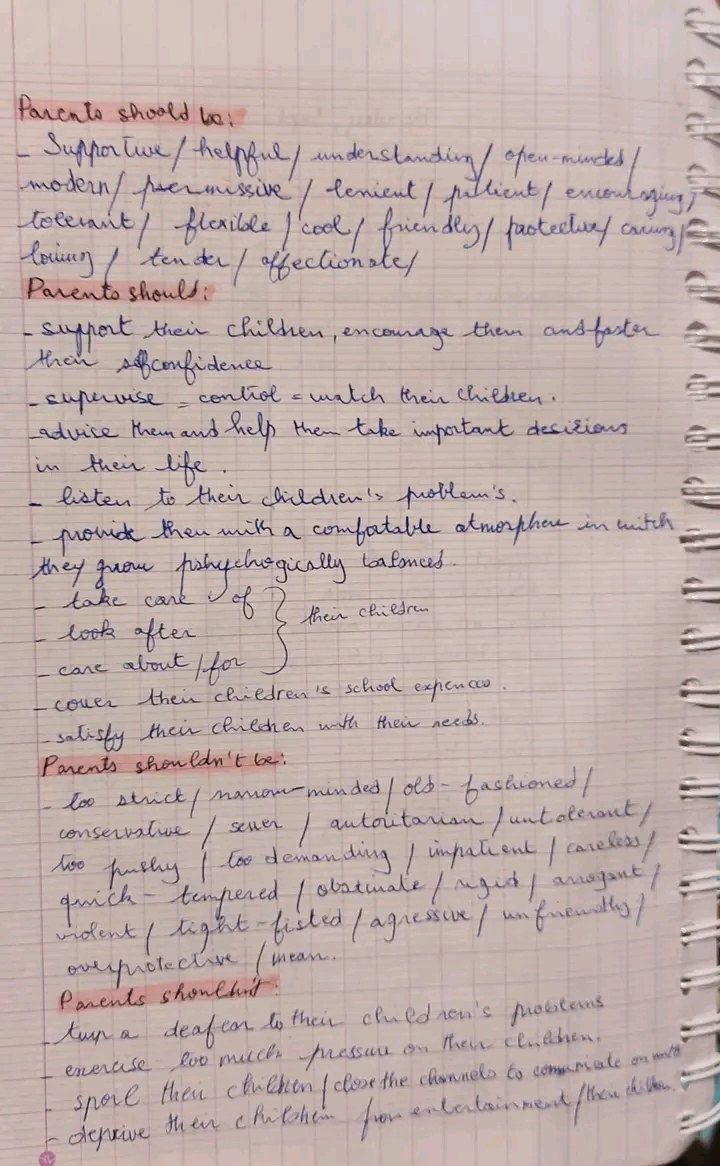 Parents should be:
- Supportive / helpful / understanding / open-minded /
modern / permissive / lenient / patient / encouraging /
tolerant / flexible / cool / friendly / protective / caring /
loving / tender / affectionate /
Parents should:
- support their children, encourage them and foster
their selfconfidence
- supervise = control = watch their children.
- advise them and help them take important desizions
in their life.
- listen to their children's problem's.
- provide them with a comfotable atmorphere in witch
they grow pshychogically balanced.
- take care of
- look after } their children
- care about / for
- cover their children's school expences.
- satisfy their children with their needs.
Parents shouldn't be:
- too strict / narrow-minded / old-fashioned /
conservative / sever / autoritarian / untolerant /
too pushy / too demanding / impatient / careless /
quick-tempered / obstinate / rigid / arrogant /
violent / tight-fisted / agressive / unfriendly /
overprotective / mean.
Parents shouldn't:
- turn a deaf ear to their children's problems
- exercise too much pressure on their children.
- spoil their children / close the channels to communicate
- deprive their children from entertainment / their children.